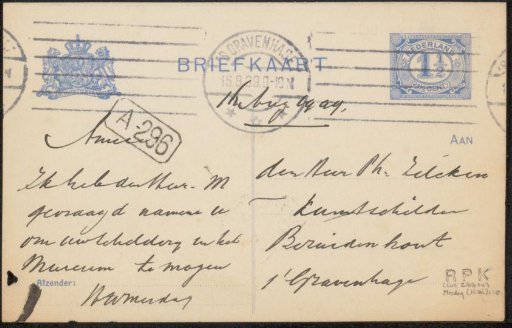 'S GRAVENHAGE
BRIEFKAART
NEDERLAND
1½
CENT
A-296
AAN
Amice
Ik heb den Heer M
gevraagd namens u
om uw schilderij in het
Museum te mogen
Afzender:
HWMesdag
den Heer Ph. Zilcken
Kunstschilder
Bezuidenhout
's Gravenhage
RPK